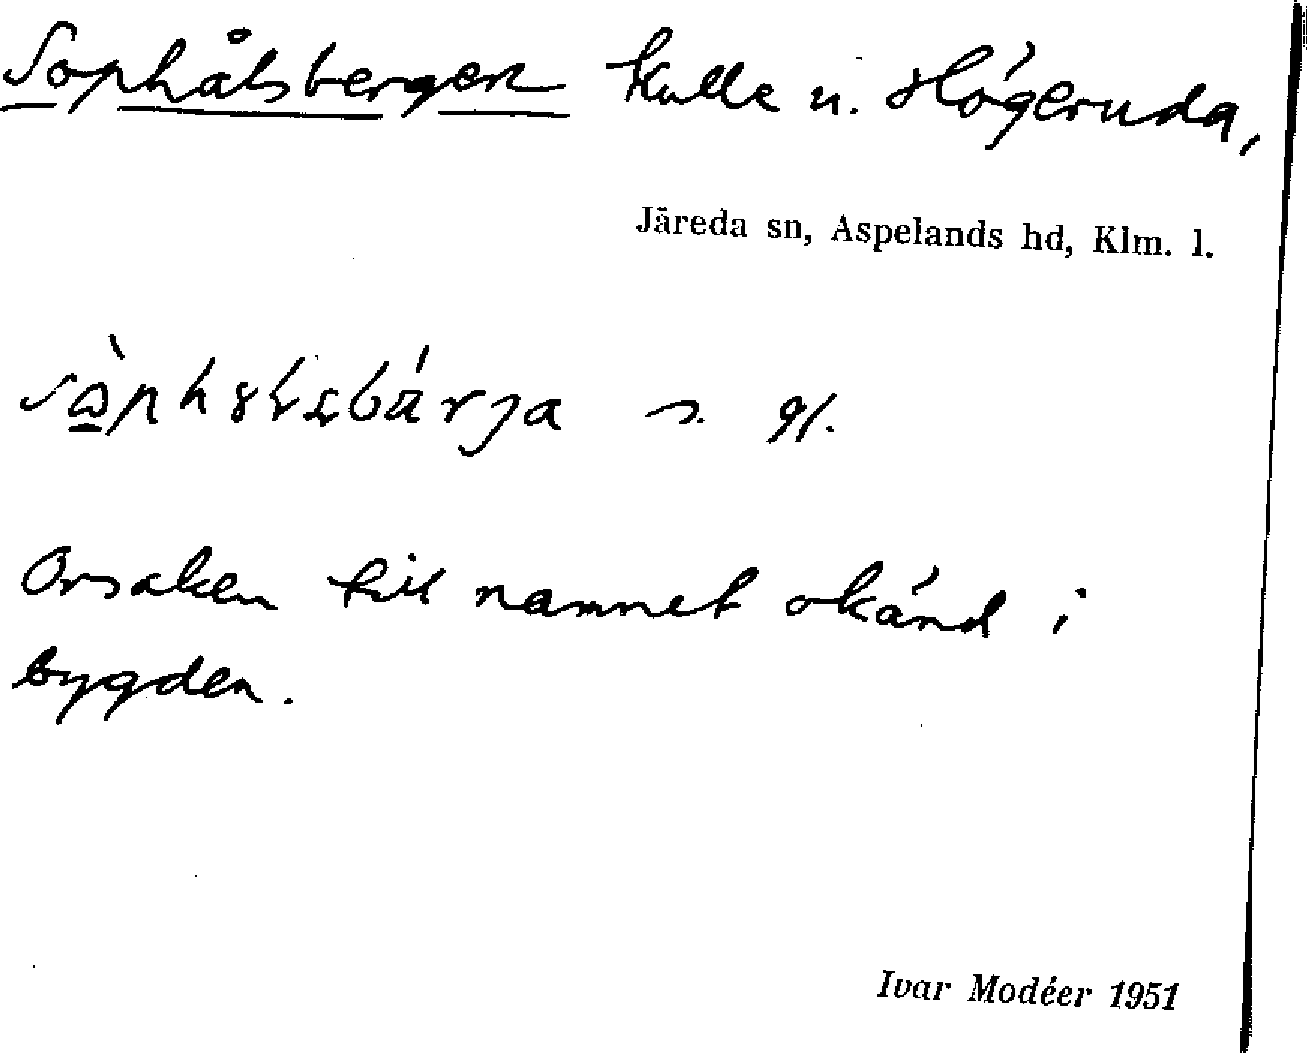 Sophålsbergen kulle n. Högeruda,
Järeda sn, Aspelands hd, Klm. l.
Orsaken till namnet okänd i
bygden.
Ivar Modéer 1951